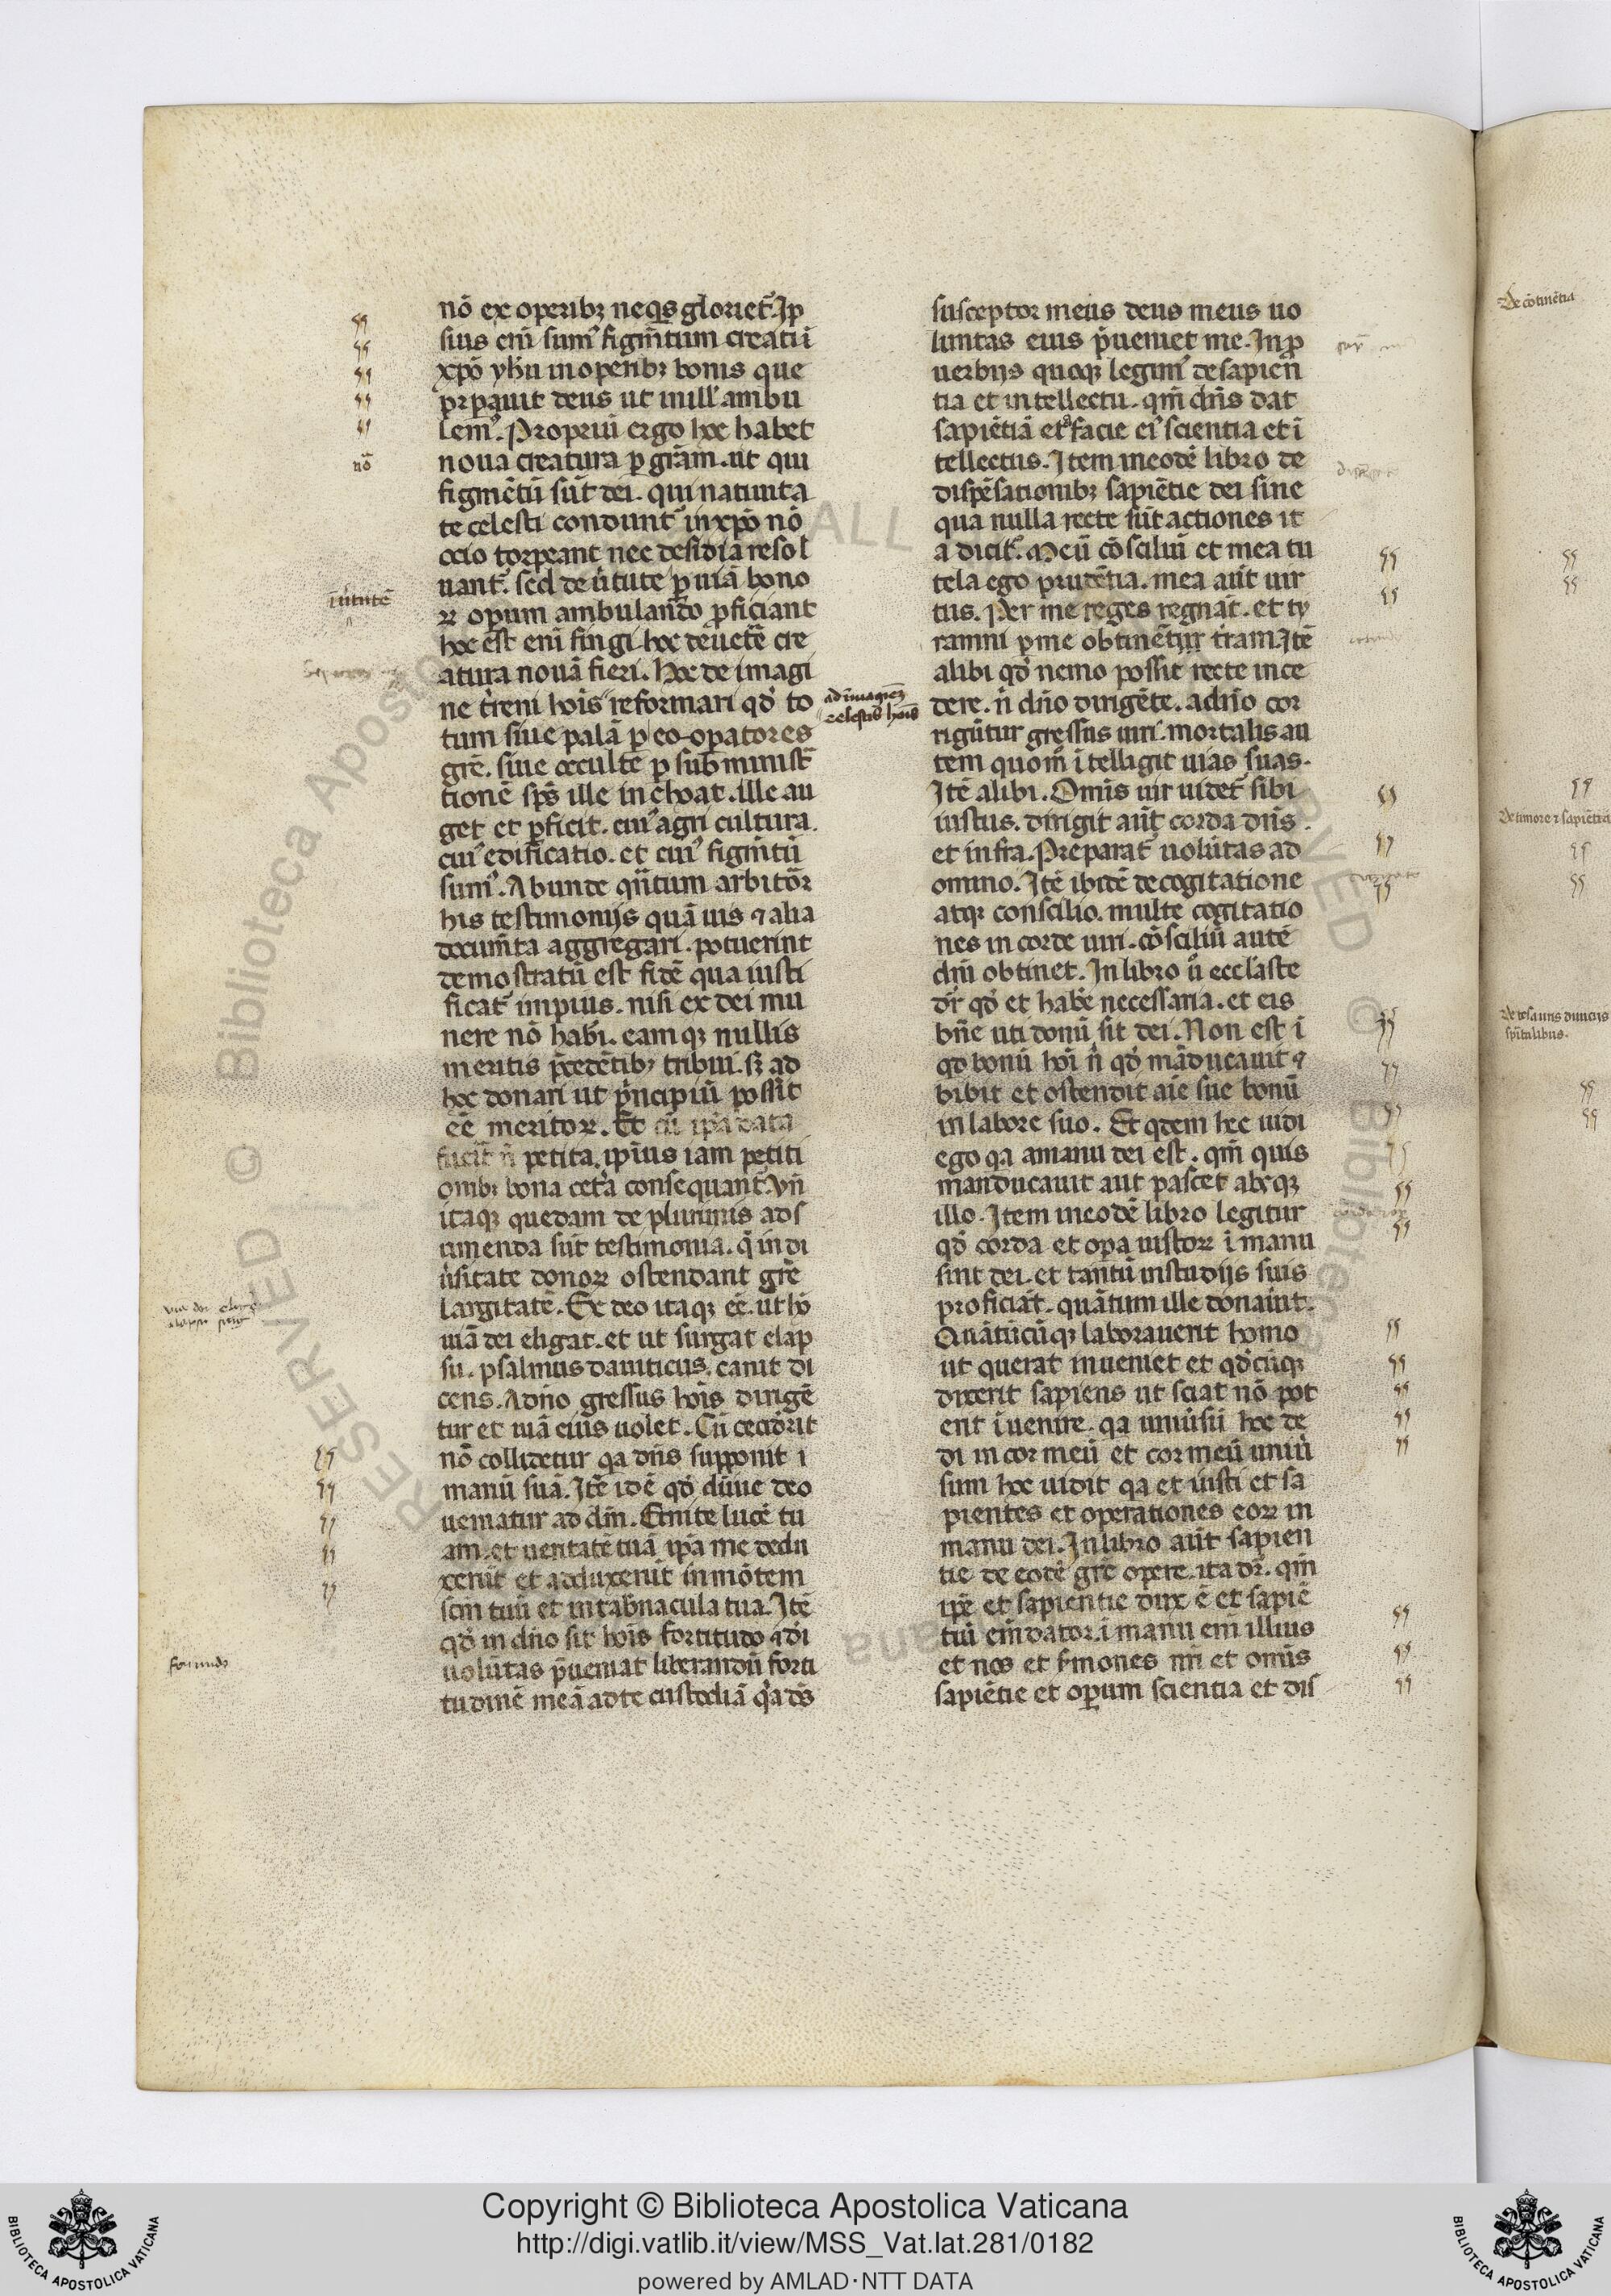 nō ex operibꝫ neqͥs glorietᷣ. Ip
sius enī sumꝰ figmn̄tum creati ī
xpō yhū in operibꝫ bonis que
prꝑauit deus ut in illꝭ ambu
lemꝰ. Propriū ergo hoc habet
noua creatura ꝑ grām. ut qui
figmētū sūt dei. qui natiuita
te celesti condunt᷑ in xp̄o nō
ocio torpeant nec desidia resol
uant᷑. sed de ūtute ꝑ uiā bono
ꝝ oꝑum ambulando ꝓficiant
hoc est enī fingi hoc de uetē cre
atura nouā fieri. Hoc de imagi
ne t̄reni hoīs reformari qd̓ to
tum siue palā ꝑ eo oꝑatores
grē. siue occulte ꝑ subministᷓ
tionē sp̄s ille inchoat. ille au
get et ꝑficit. cuiꝰ agri cultura.
cuiꝰ edificatio. et cuiꝰ figm̄tū
sumꝰ. Abunde qn̄tum arbitōr
his testimonijs quā uis ⁊ alia
documn̄ta aggregari. potuerint
demostratū est fidē qua iusti
ficat᷑ impius. nisi ex dei mu
nere nō habī. eam qꝫ nullis
meritis p̄cedētibꝫ tribui. sꝫ ad
hoc donari ut p̄ncipiū possit
eē meritoꝝ. Et cū ip̄a data
fuerit n̄ petita. ipsius iam petiti
onibꝫ bona cet̄a consequant᷑. Vn̄
itaqꝫ quedam de plurimis ads
umenda sūt testimonia. q̄ in di
ūsitate donoꝝ ostendant grē
largitatē. Ex deo itaqꝫ eē. ut hō
uiā dei eligat. et ut surgat elap
su. psalmus dauiticus. canit di
cens. A dn̄o gressus hoīs dirigē
tur et uiā eius uolet. Cū cecid̄rit
nō collidetur qa dn̄s supponit i
manū suā. Itē idē qd̓ diūie deo
ueniatur ad dn̄m. Emite lucē tu
am. et ueritatē tuā ip̄a me dedu
xerūt et adduxerūt in mōtem
scm̄ tuū et in tab̄nacula tua. Itē
qd̓ in dn̄o sit hoīs fortitudo ⁊ di
uolūtas p̄ueniat liberandū forti
tudinē meā ad te custodiā q̓a ds̄
ad īmaginē
celestis hoīs
ī ūtutē
nō
susceptor meus deus meus uo
luntas eius p̄ueniet me. In ꝓ
uerbijs quoqꝫ legimꝰ de sapien
tia et intellectu. qm̄ dn̄s dat
sapiētiā et a facie eiꝰ scientia et ī
tellectus. Item in eodē libro de
dispēsationibꝫ sapiētie dei sine
qua nulla recte sūt actiones it
a dicit᷑. Meū cōsciliū et mea tu
tela ego prudētia. mea aūt uir
tus. Per me reges regnāt. et ty
ranni ꝑ me obtinētur t̄ram. Itē
alibi qd̓ nemo possit recte ince
dere. n̄ dn̄o dirigēte. a dn̄o cor
rigūtur gressus uiri. mortalis au
tem quom̄ ītelligit uias suas.
Itē alibi. Omīs uir uidet᷑ sibi
iustus. dirigit aūt corda dn̄s.
et infra. Preparat᷑ uolūtas a d
omino. Itē ibidē de cogitatione
atqꝫ conscilio. multe cogitatio
nes in corde uiri. cōsciliū autē
dn̄i obtinet. In libro ū ecclaste
dr̄ qd̓ et habē necessaria. et eis
bn̄e uti donū sit dei. Non est i
qd bonū hoī n̄ qd̓ māducauit ⁊
bibit et ostendit aīe sue bonū
in labore suo. Et qdem hec uidi
ego qa a manu dei est. qm̄ quis
manducauit aut pascet absqꝫ
illo. Item in eodē libro legitur
qd̓ corda et oꝑa iustoꝝ ī manu
sint dei. et tantū in studijs suis
proficiāt. quātum ille donauit.
Quātūcūqꝫ laborauerit homo
ut querat inueniet et qd̓cūqꝫ
dixerit sapiens ut sciat nō pot
erit īuenire. qa uniūsū hoc de
di in cor meū et cor meū uniū
sum hoc uidit qa et iusti et sa
pientes et operationes eoꝝ in
manu dei. In libro aūt sapien
tie de eodē grē opere. ita dr̄. qm̄
ip̄e et sapientie dux ē et sapiē
tiū em̄dator. ī manu em̄ illius
et nos et s̄mones nr̄i et omīs
sapiētie et oꝑum scientia et dis
De cōtinētia
De timore ⁊ sapiētia
spūalibus.
Copyright © Biblioteca Apostolica Vaticana
http://digi.vatlib.it/view/MSS_Vat.lat.281/0182
powered by AMLAD·NTT DATA
BIBLIOTECA APOSTOLICA VATICANA
BIBLIOTECA APOSTOLICA VATICANA